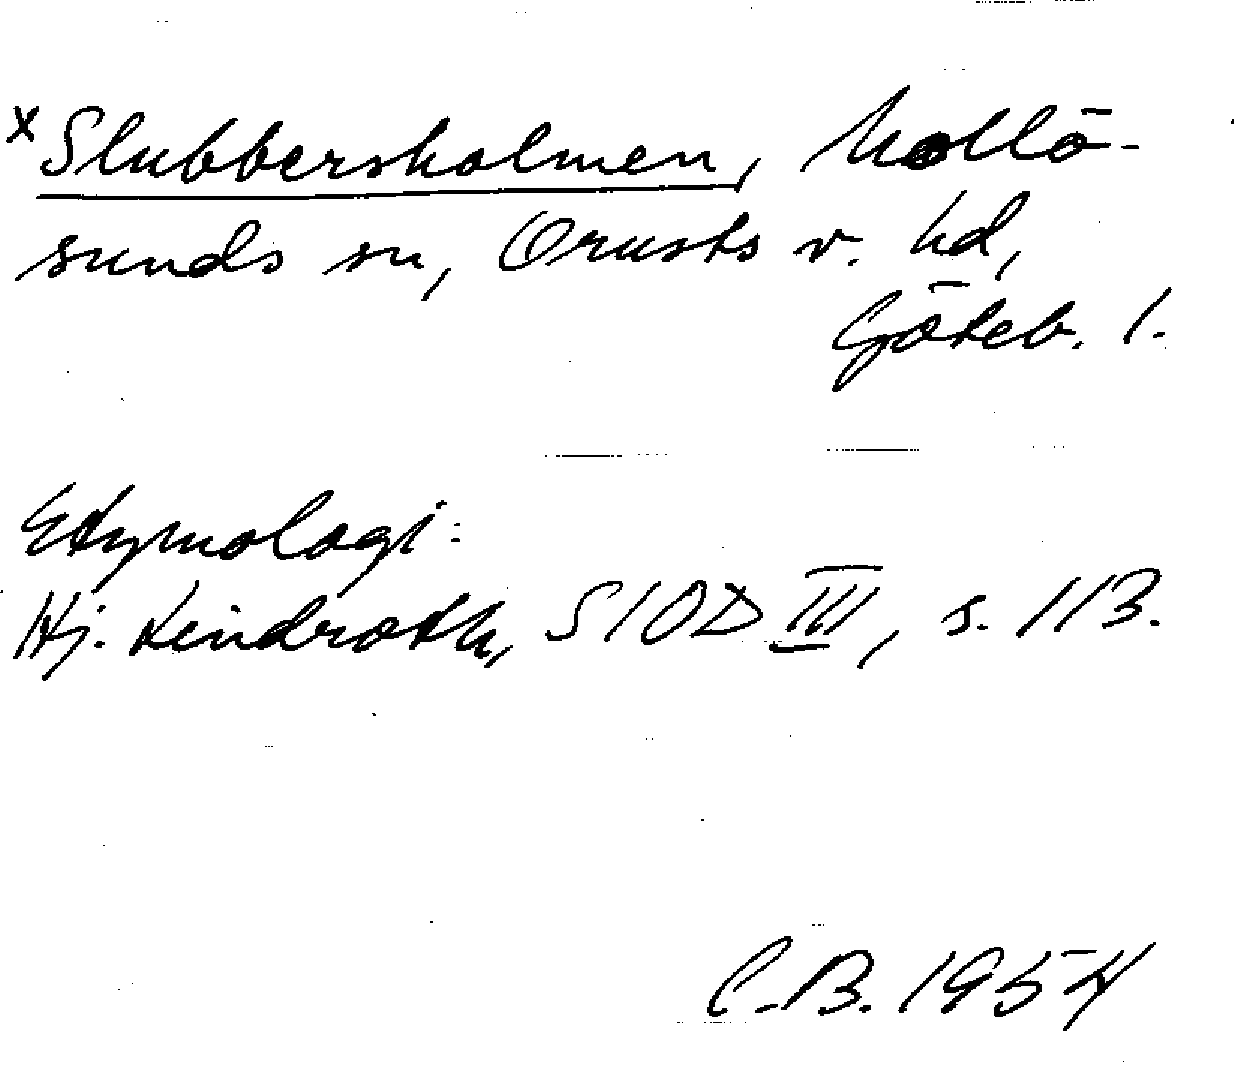 x Slubbersholmen, Mollö-
sunds sn, Orusts v. hd,
Göteb. l.
Etymologi:
Hj. Lindroth, SIOD III, s. 113.
C.B. 1954